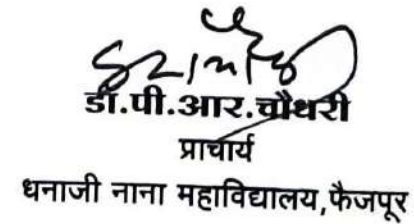 डॉ.पी.आर.चौधरी
प्राचार्य
धनाजी नाना महाविद्यालय,फैजपूर